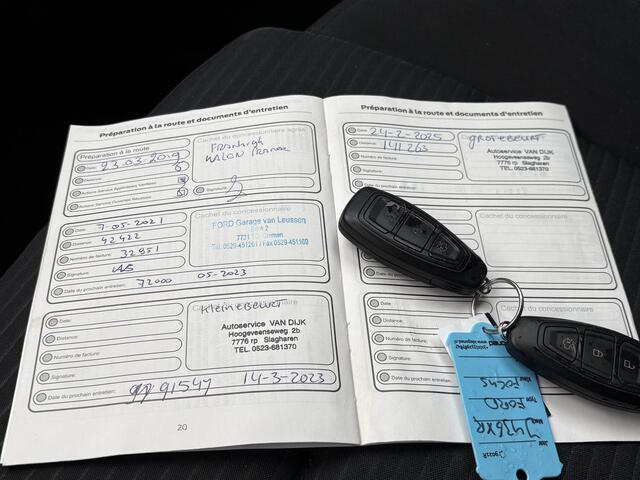 Préparation à la route et documents d'entretien
Préparation à la route
Date: 23.03.2019
Actions Service Applicables Vérifiées
Cachet du concessionnaire agréé
Signature:
Date: 7-05-2021
Distance: 42422
Numéro de facture: 32951
Signature
Date du prochain entretien: 72000 05-2023
Cachet du concessionnaire
FORD Garage van Leussen
Tel. 0529-451261 / Fax 0529-451160
Date:
Distance:
Numéro de facture:
Signature:
Date du prochain entretien: 91547 14-3-2023
Kleinebeurt
Autoservice VAN DIJK
Hoogeveenseweg 2b
7776 rp Slagharen
TEL. 0523-681370
20
Préparation à la route et documents d'entretien
Date: 24-2-2025
Distance: 141263
Numéro de facture
Signature:
Date du prochain entretien:
grotebeurt
Autoservice VAN DIJK
Hoogeveenseweg 2b
7776 rp Slagharen
TEL. 0523-681370
Date:
Distance:
Numéro de facture
Cachet du concessionnaire
Date:
Distance:
Numéro de facture:
Signature:
Date du prochain entretien:
Cachet du concessionnaire
FOCUS
Type FORD